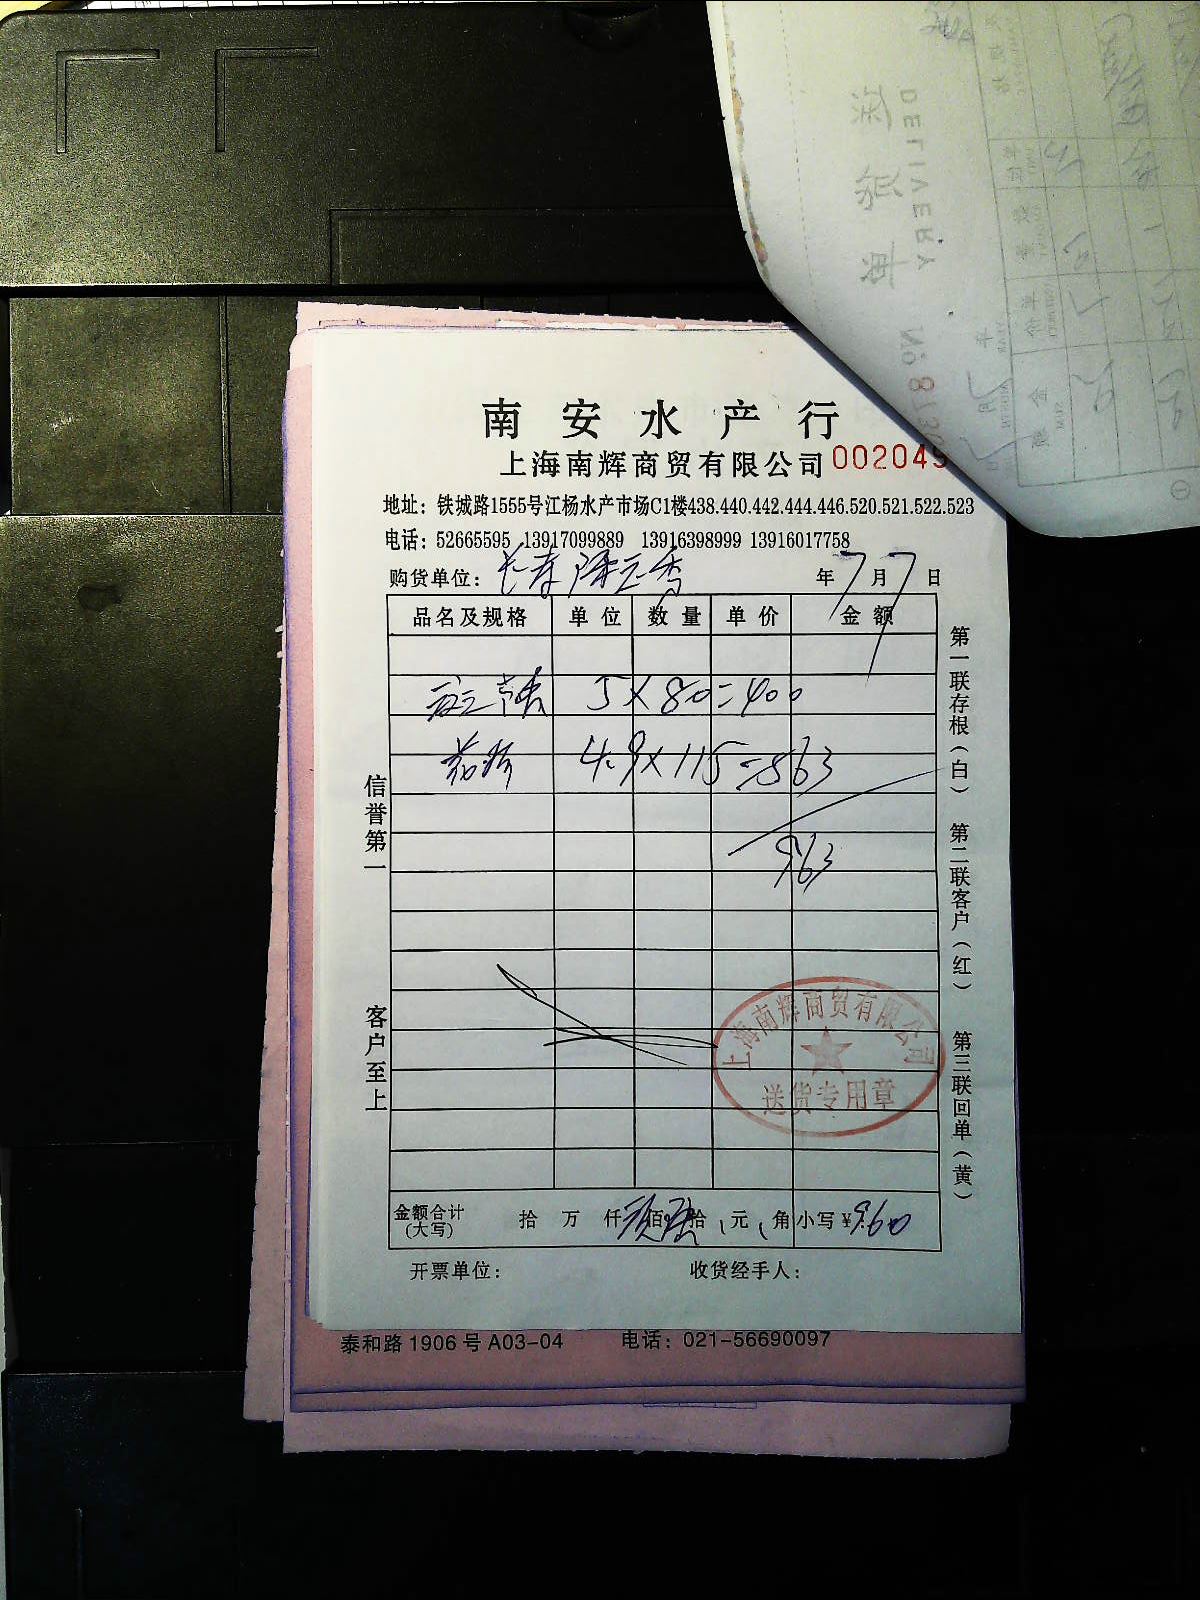 南安水产行
上海南辉商贸有限公司 002049
地址：铁城路1555号江杨水产市场C1楼438.440.442.444.446.520.521.522.523
电话：52665595 13917099889 13916398999 13916017758
购货单位： 年7月7日
品名及规格 单位 数量 单价 金额
5×80=400
4.9×115=563
963
信誉第一
客户至上
第一联存根（白） 第二联客户（红） 第三联回单（黄）
上海南辉商贸有限公司
送货专用章
金额合计（大写） 拾 万 仟 佰 拾 元 角 小写¥960
开票单位： 收货经手人：
泰和路1906号A03-04 电话：021-56690097
DELIVERY